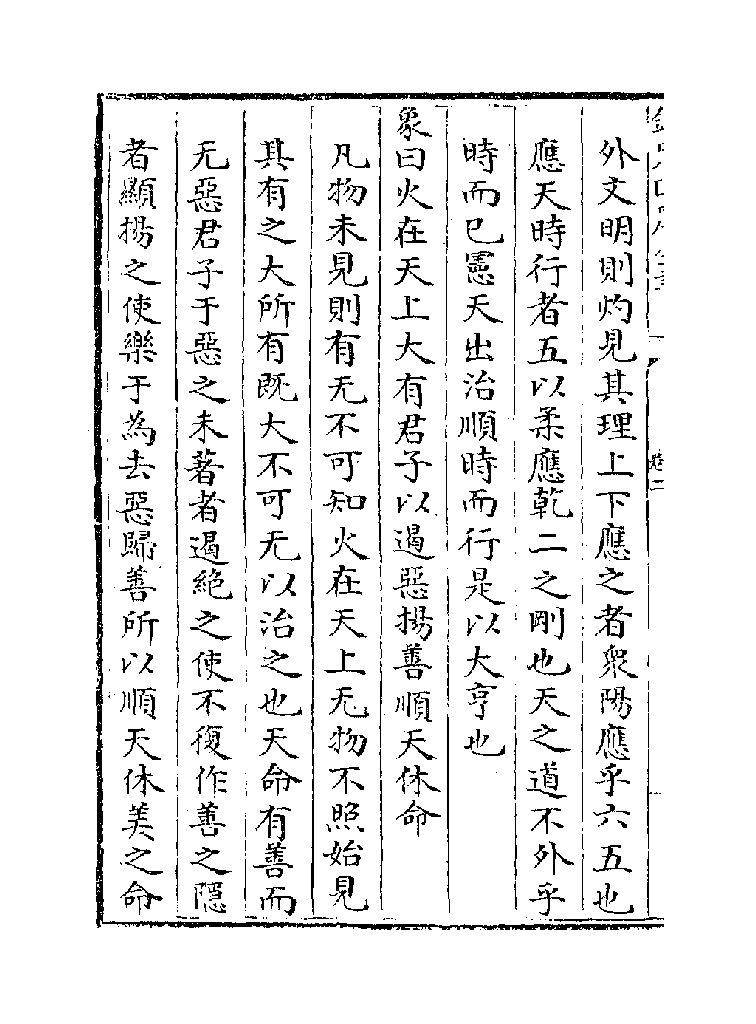 外文明則灼見其理上下應之者衆陽應乎六五也
應天時行者五以柔應乾二之剛也天之道不外乎
時而已憲天出治順時而行是以大亨也
象曰火在天上大有君子以遏惡揚善順天休命
凡物未見則有无不可知火在天上无物不照始見
其有之大所有既大不可无以治之也天命有善而
无惡君子于惡之未著者遏絶之使不復作善之隱
者顯揚之使樂于為去惡歸善所以順天休美之命